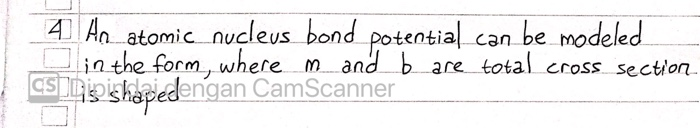 4 An atomic nucleus bond potential can be modeled
in the form, where m and b are total cross section
is shaped
CS Dipindai dengan CamScanner